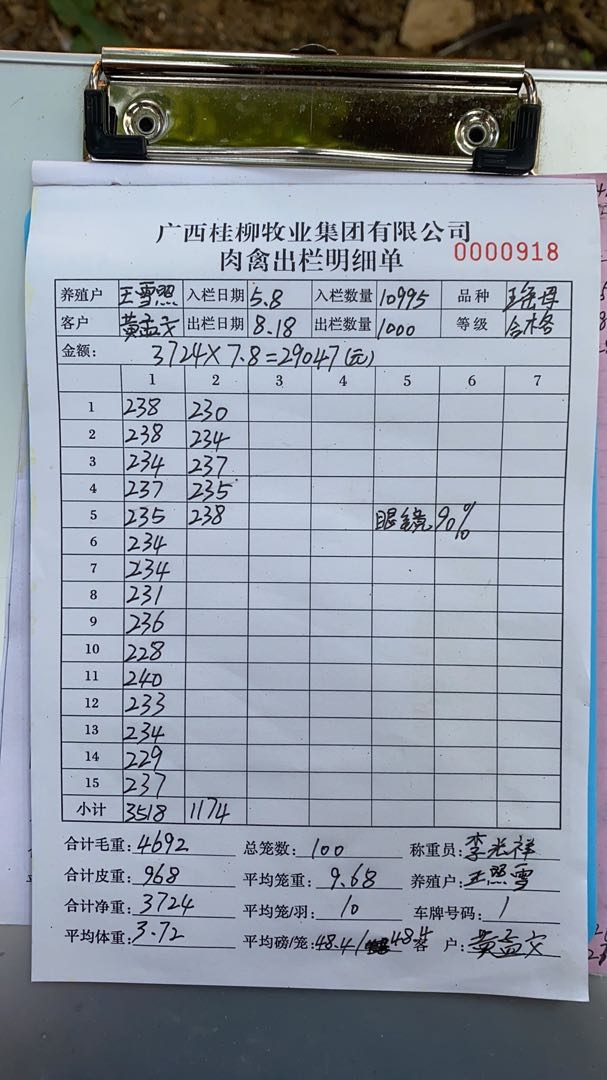 广西桂柳牧业集团有限公司
肉禽出栏明细单 0000918
养殖户 王雪照 入栏日期 5.8 入栏数量 10995 品种
客户 黄孟文 出栏日期 8.18 出栏数量 1000 等级 合格
金额: 3724×7.8=29047(元)
1 2 3 4 5 6 7
1 238 230
2 238 234
3 234 237
4 237 235
5 235 238 眼镜90%
6 234
7 234
8 231
9 236
10 228
11 240
12 233
13 234
14 229
15 237
小计 3518 1174
合计毛重: 4692 总笼数: 100 称重员: 李光祥
合计皮重: 968 平均笼重: 9.68 养殖户: 王照雪
合计净重: 3724 平均笼/羽: 10 车牌号码: 1
平均体重: 3.72 平均磅/笼: 48.4/ 48.4 客户: 黄孟文